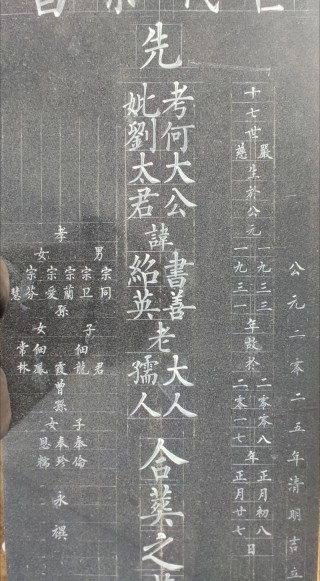 公元二零二五年清明吉立
十七世
嚴
慈
生於公元
一九三三
一九三一
年歿於
二零零八
二零一七
年
正月初八
正月廿七
日
先
考何大公
妣劉太君
諱
書善
紹英
老
大人
孺人
合葬之
孝
男
女
宗宗宗宗宗
同卫蘭爱芬慧
孫
子
女
佃 佃常
君龍霞鳳林
曾孫
子
女
奉倫
奉珍
恩
永禩